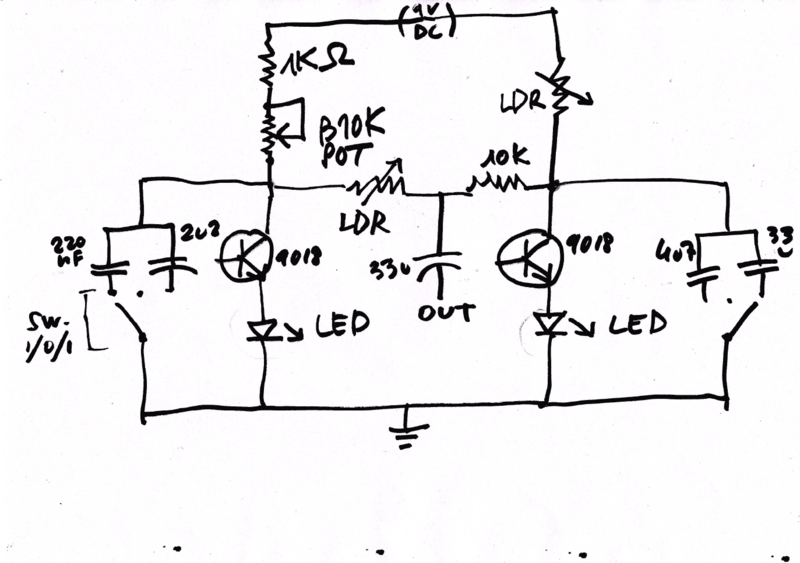 9V
DC
1KΩ
LDR
B10K
POT
10K
LDR
220
nF
2u2
9018
33u
9018
4u7
33
u
OUT
LED
LED
SW.
1/0/1